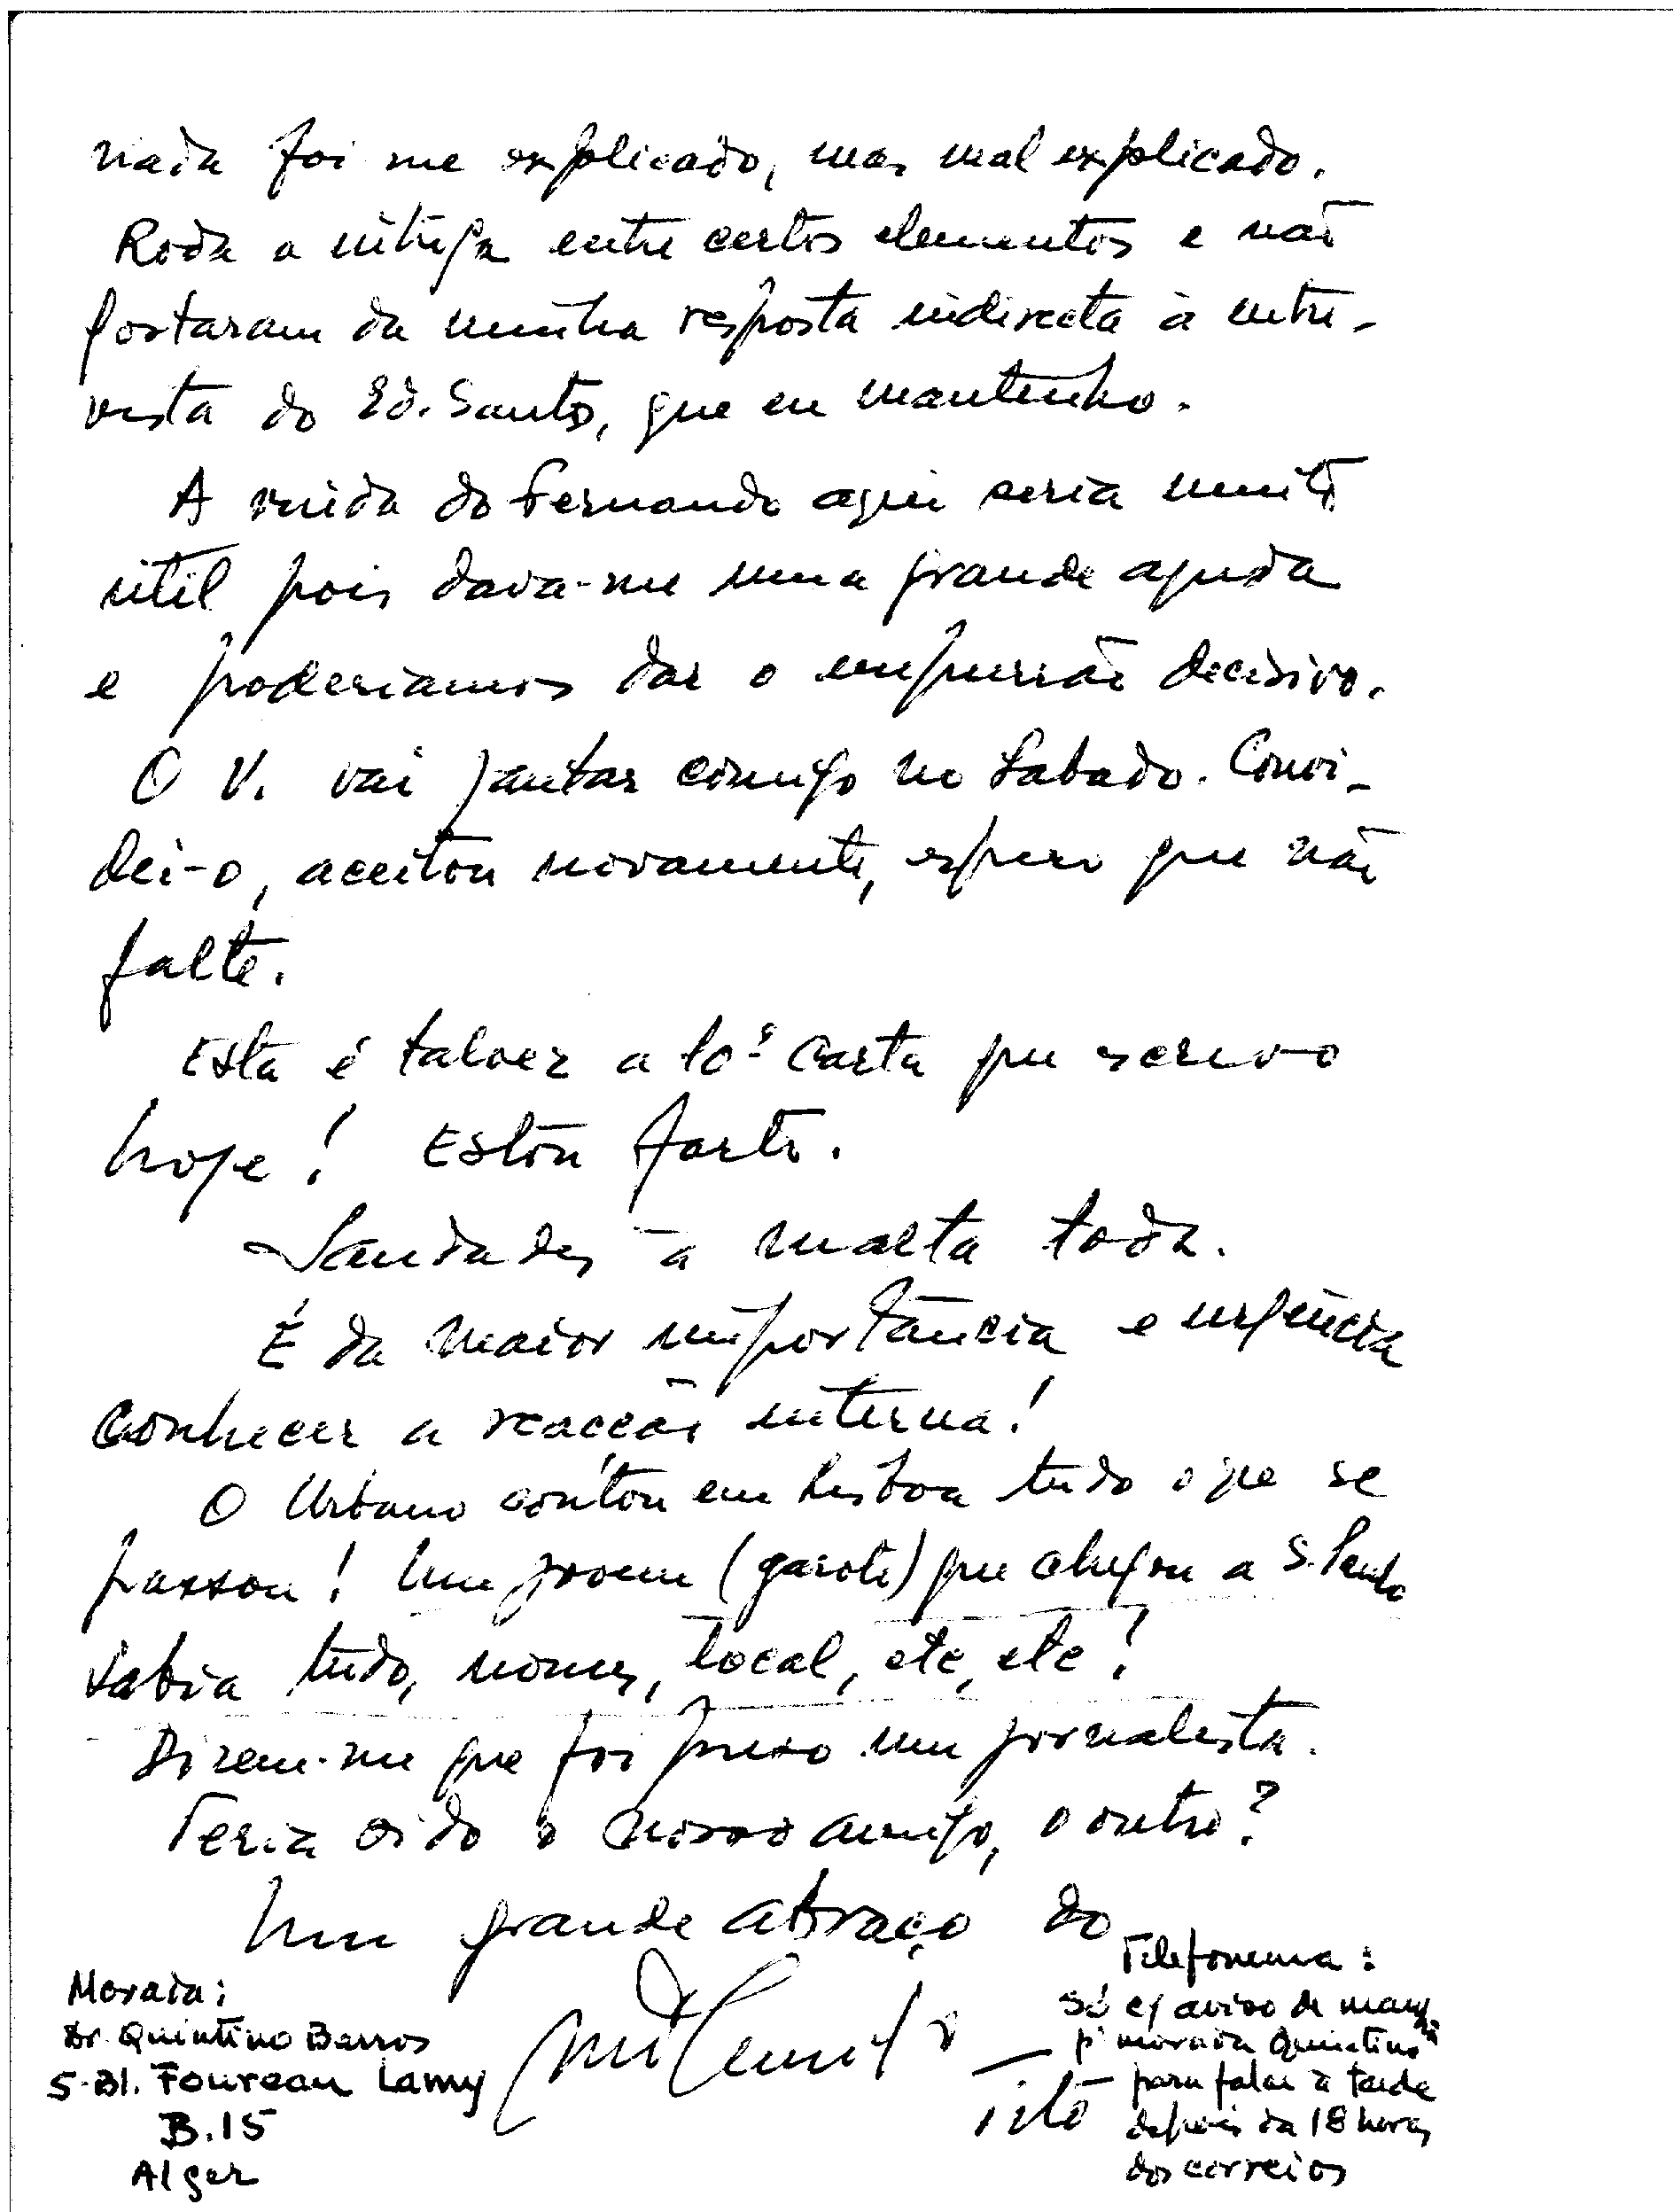 nada foi me explicado, mas mal explicado.
Roda a intriga entre certos elementos e não
gostaram da minha resposta indirecta à entre-
vista do Ed. Santos, que eu mantenho.
A vinda do Fernando aqui seria muito
útil pois dava-me uma grande ajuda
e poderiamos dar o empurrão decisivo.
O V. vai jantar comigo no Sabado. Convi-
dei-o, aceitou novamente, espero que não
falte.
Esta é talvez a 10ª carta que escrevo
hoje! Estou farto.
Saudades à malta toda.
É da maior importância e urgência
conhecer a reacção interna!
O Urbano contou em Lisboa tudo o que se
passou! Um jovem (garoto) que chegou a S. Paulo
sabia tudo, nomes, local, etc, etc!
Dizem-me que foi preso um jornalista.
Teria sido o nosso amigo, o outro?
Um grande abraço do
Morada:
Dr. Quintino Barros
5-Bl. Foureau Lamy
B.15
Alger
Tito
Telefonema:
só c/ aviso de
p'ª morada Quintino
para falar à tarde
depois da 18 horas
dos correios